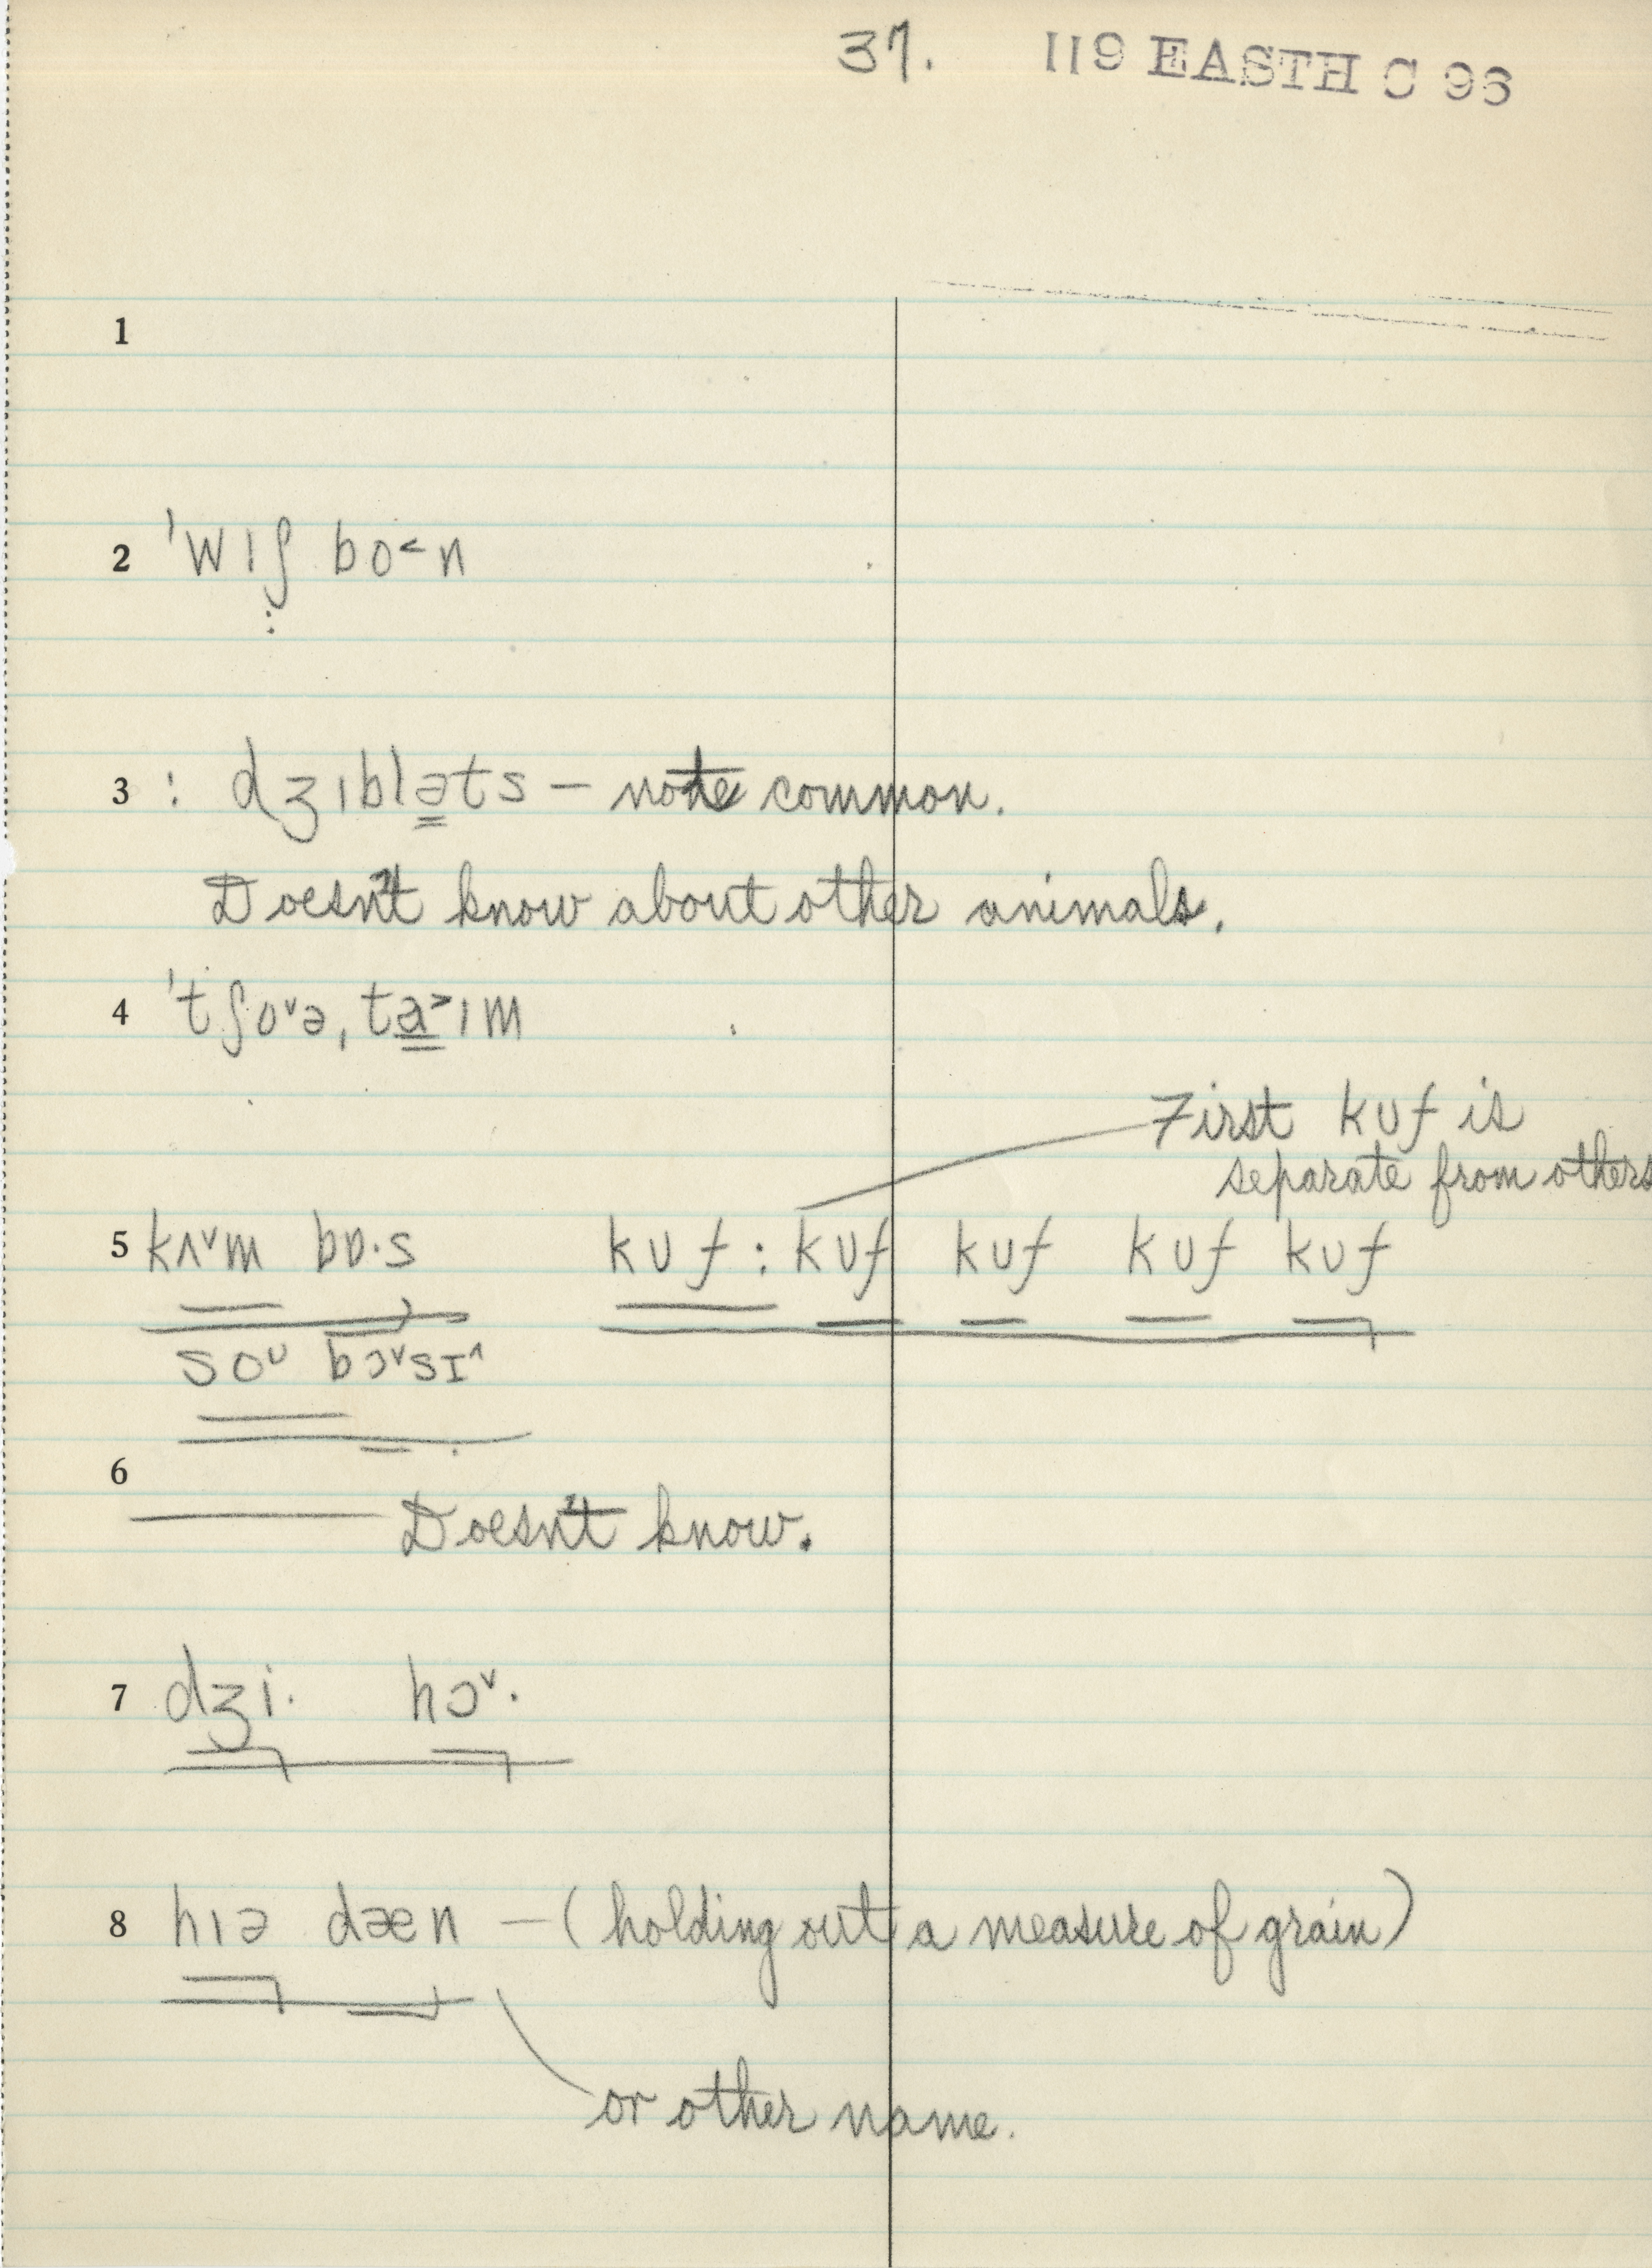 37. 119 EASTH C 96
1
2 ˈwɪʃ bo˂n
3 : dʒɪbləts – not common.
Doesn't know about other animals.
4 ˈtʃoˇə, ta˃ɪm
First kuf is
separate from others
5 kʌˇm bɒ·s kuf : kuf kuf kuf kuf
soᴜ bɔˇsɪ^
6 Doesn't know.
7 dʒi· hɔˇ·
8 hɪə dæn – (holding out a measure of grain)
or other name.